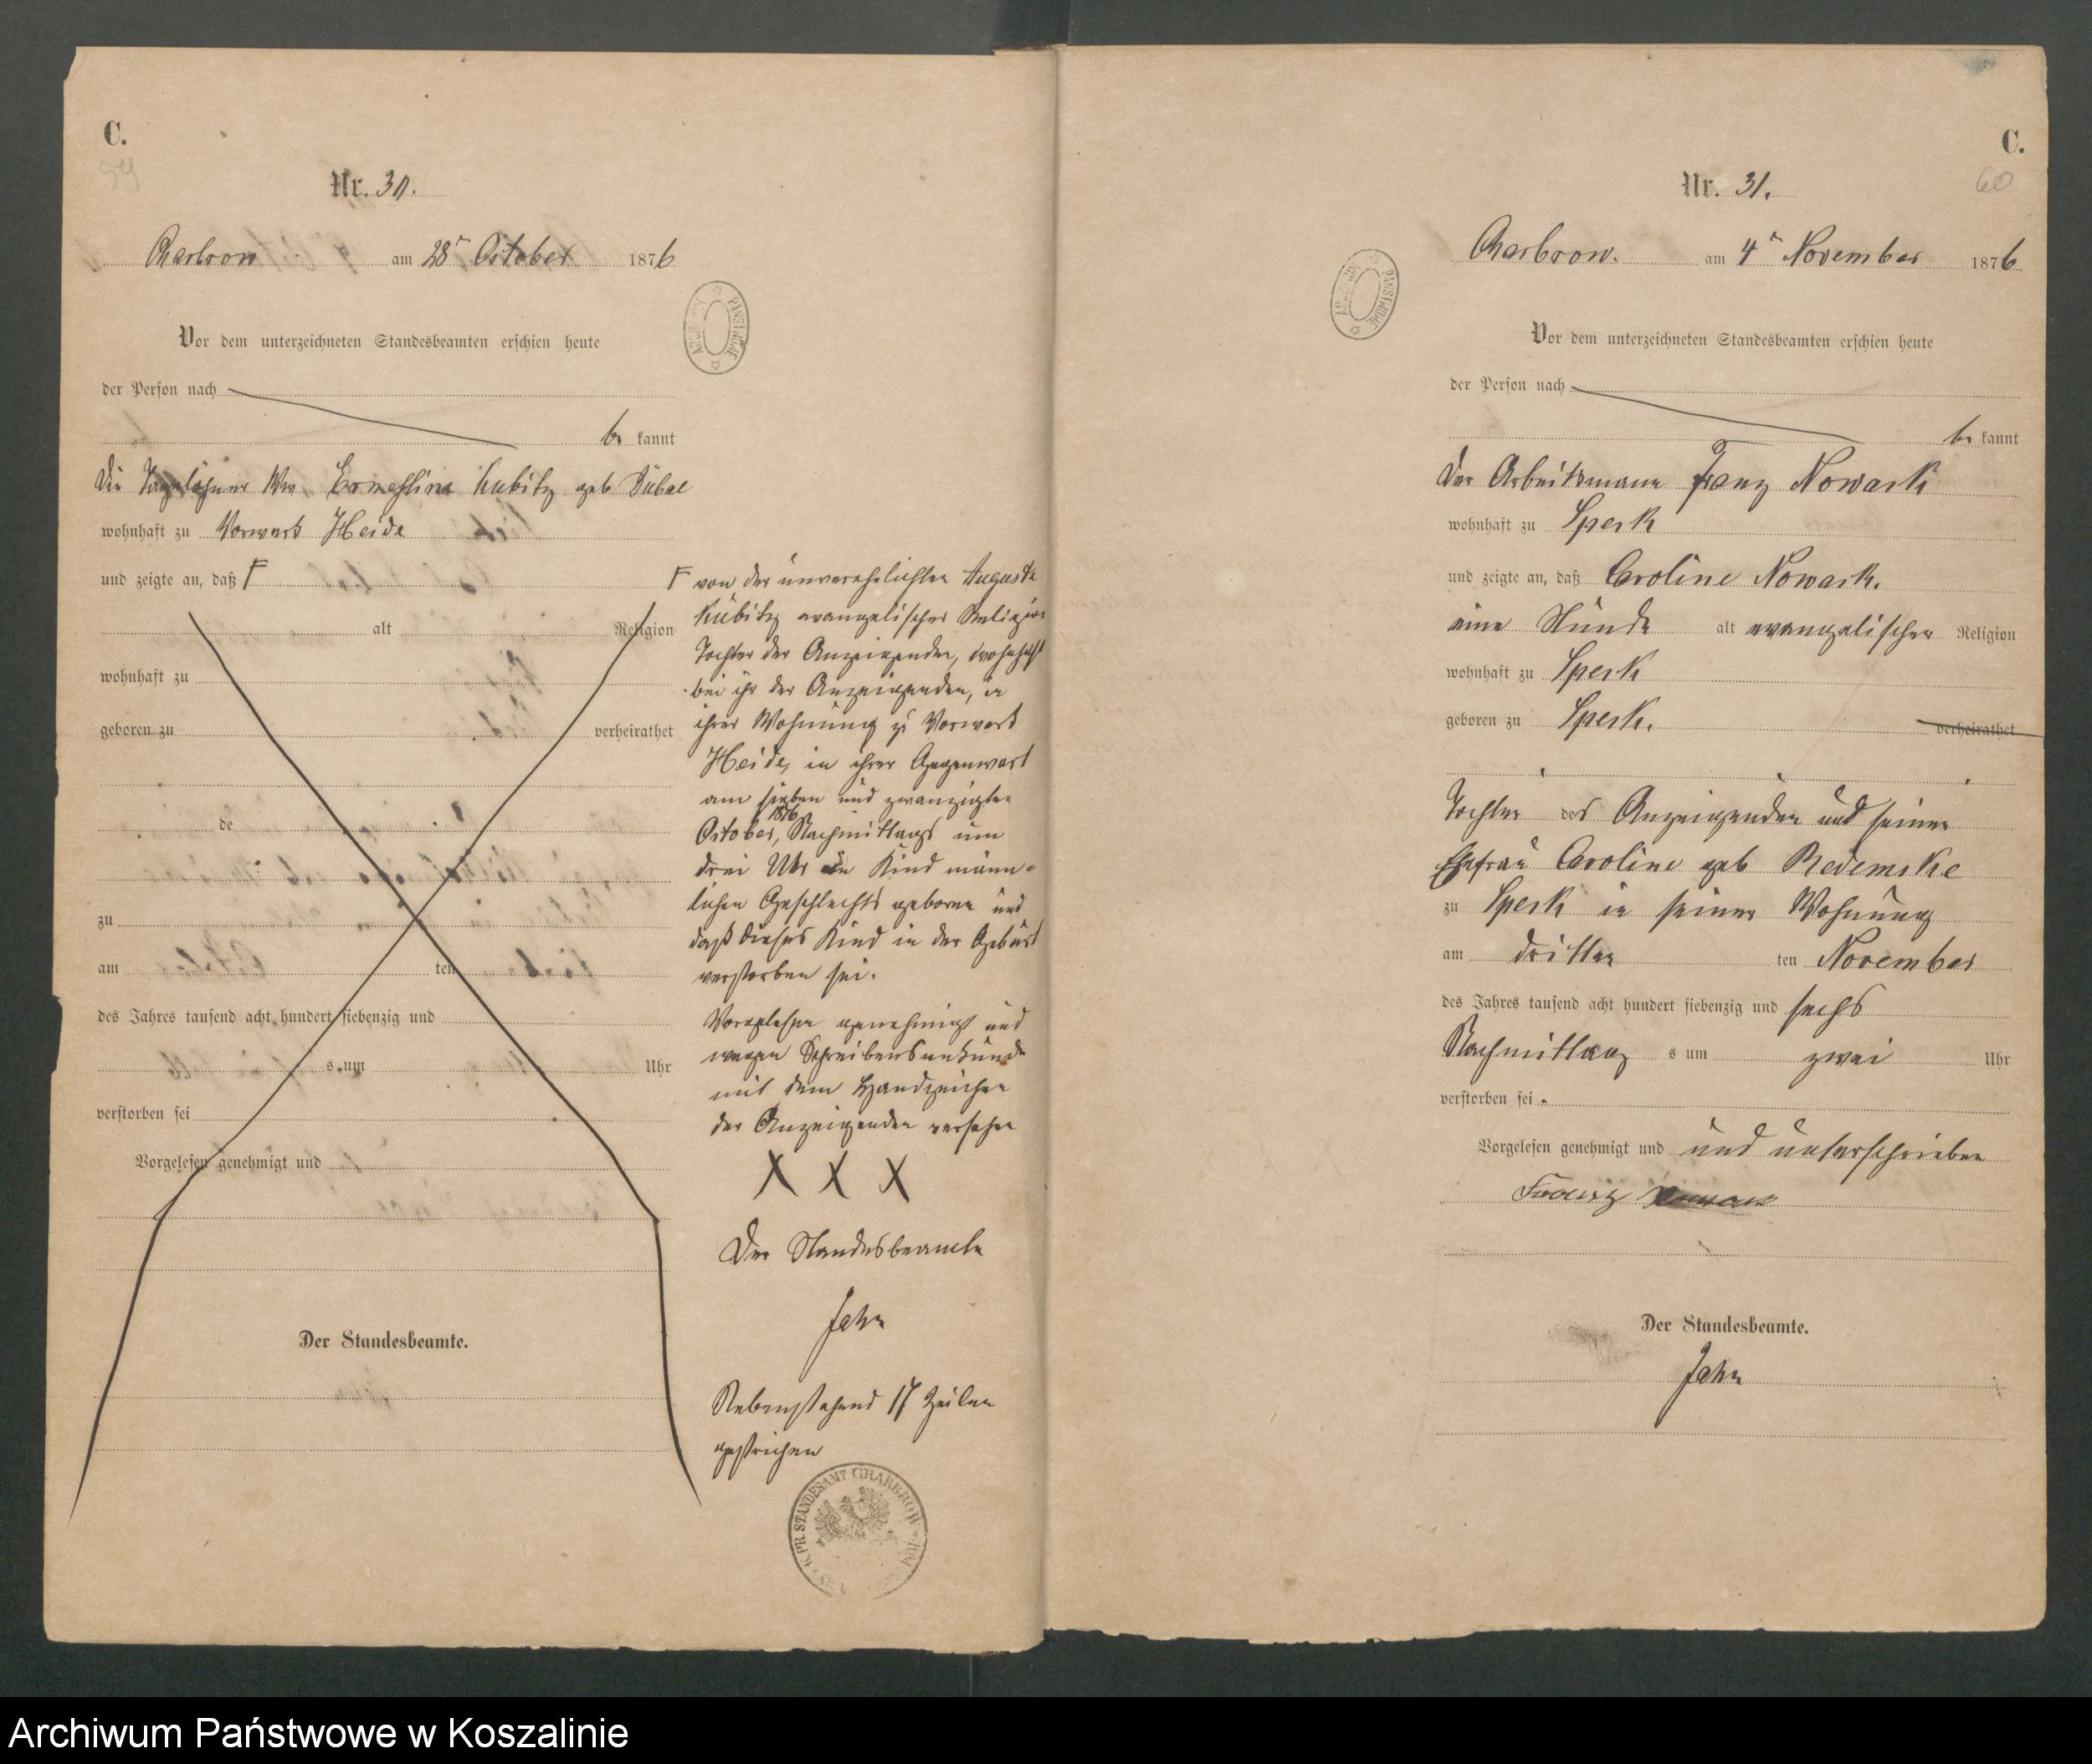 C.
59
Nr. 30.
Charbrow am 28ⁿ October 1876
Vor dem unterzeichneten Standesbeamten erschien heute
der Person nach
be kannt
Die Tagelöhner Ww Ernestine Kubitz geb Dübal
wohnhaft zu Vorwerk Heide
und zeigte an, daß F
alt Religion
wohnhaft zu
geboren zu verheirathet
de
zu
am ten
des Jahres tausend acht hundert siebenzig und
s um Uhr
verstorben sei
Vorgelesen genehmigt und
Der Standesbeamte.
F von der unverehelichten Auguste
Kubitz evangelischer Religion
Tochter der Anzeigenden, wohnhaft
bei ihr der Anzeigenden, in
ihrer Wohnung zu Vorwerk
Heide, in ihrer Gegenwart
am sieben und zwanzigten
1876
October, Nachmittags um
drei Uhr ein Kind männ-
lichen Geschlechts geboren und
daß dieses Kind in der Geburt
verstorben sei.
Vorgelesen genehmigt und
wegen Schreibensunkunde
mit dem Handzeichen
der Anzeigenden versehen
X X X
Der Standesbeamte
Jahn
Nebenstehend 17 Zeilen
gestrichen
K. PR STANDESAMT CHARBROW
ARCH PAŃSTWOWE
C.
60
Nr. 31.
Charbrow. am 4ⁿ November 1876
ARCH PAŃSTWOWE
Vor dem unterzeichneten Standesbeamten erschien heute
der Person nach
be kannt
Der Arbeitsmann Franz Nowack
wohnhaft zu Speck
und zeigte an, daß Caroline Nowack.
eine Stunde alt evangelischen Religion
wohnhaft zu Speck
geboren zu Speck. verheirathet
Tochter des Anzeigenden und seiner
Ehefrau Caroline geb Redemske
zu Speck in seiner Wohnung
am dritten ten November
des Jahres tausend acht hundert siebenzig und sechs
Nachmittag s um zwei Uhr
verstorben sei.
Vorgelesen genehmigt und und unterschrieben
Franz Nowack
Der Standesbeamte.
Jahn
Archiwum Państwowe w Koszalinie